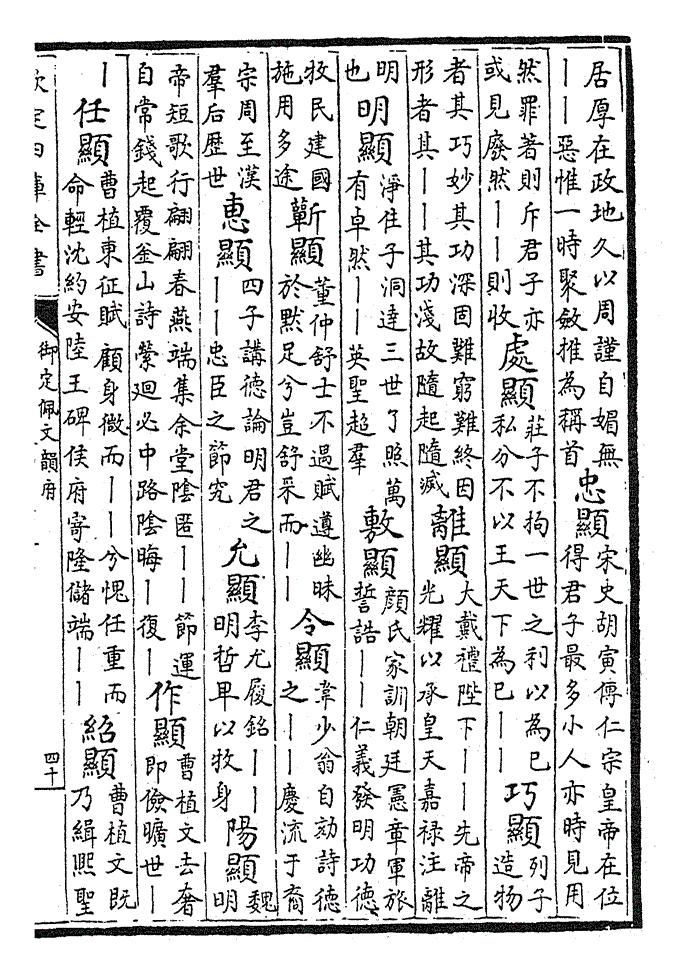 居厚在政地久以周謹自媚無
——惡惟一時聚斂推為稱首
忠顯
宋史胡寅傳仁宗皇帝在位
得君子最多小人亦時見用
然罪著則斥君子亦
或見廢然——則收
處顯
莊子不拘一世之利以為己
私分不以王天下為己——
巧顯
列子
造物
者其巧妙其功深固難窮難終因
形者其——其功淺故隨起隨滅
離顯
大戴禮陛下——先帝之
光耀以承皇天嘉禄注離
明
也
明顯
淨住子洞達三世了照萬
有卓然——英聖超羣
敷顯
顔氏家訓朝廷憲章軍旅
誓誥——仁義發明功德
牧民建國
施用多途
蘄顯
董仲舒士不遇賦遵幽昧
於默足兮豈舒采而——
令顯
韋少翁自劾詩德
之——慶流于裔
宗周至漢
羣后歴世
惠顯
四子講德論明君之
——忠臣之節究
允顯
李尤履銘——
明哲卑以牧身
陽顯
魏
明
帝短歌行翩翩春燕端集余堂陰匿——節運
自常錢起覆釜山詩縈廻必中路陰晦—復—
作顯
曹植文去奢
即儉曠世—
—
任顯
曹植東征賦顧身微而——兮愧任重而
命輕沈約安陸王碑侯府寄隆儲端——
紹顯
曹植文既
乃緝熙聖
欽定四庫全書
御定佩文韻府
四十